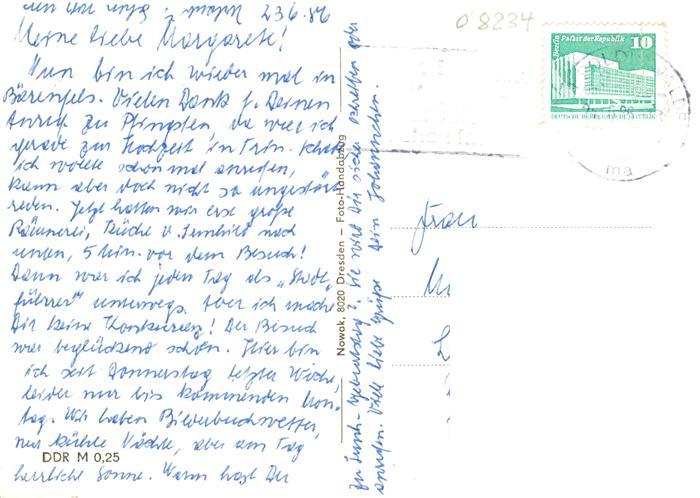 23.6.86
Meine liebe Margarete!
Nun bin ich wieder mal in
Bärenfels. Vielen Dank f. Deinen
Anruf zu Pfingsten, da war ich
gerade zur Hochzeit in Trin.
ich wollte schon mal anrufen,
kann aber doch nicht so ungestört
reden. Jetzt hatten wir erst große
Räumerei, Küche v. nach
unten, 5 Min. vor dem Besuch!
Dann war ich jeden Tag als „Stadt-
führer" unterwegs. Aber ich mache
Dir keine Konkurrenz! Der Besuch
war beglückend schön. Hier bin
ich seit Donnerstag letzter Woche,
leider nur bis kommenden Mon-
tag. Wir haben Bilderbuchwetter,
nur kühle Nächte, aber am Tag
herrliche Sonne. Wann hast Du
DDR M 0,25
Geburtstag? Sie wird Dir sicher schreiben oder
anrufen. Viele liebe Grüße Dein Johannchen.
Nowak, 8020 Dresden – Foto-Handabzug
08234
Berlin Palast der Republik
10
DEUTSCHE DEMOKRATISCHE REPUBLIK
ma
Frau